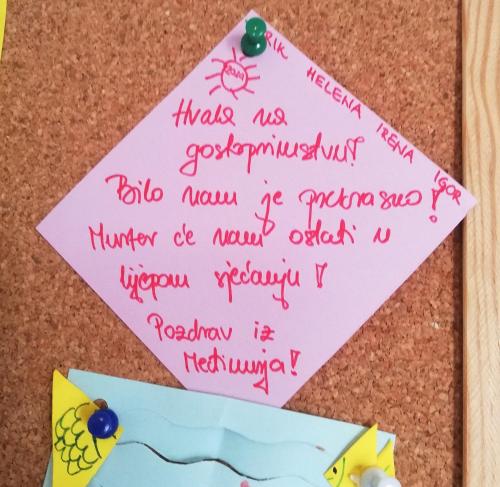 RIK HELENA IRENA IGOR
Hvala na
gostoprimstvu!
Bilo nam je prekrasno!
Murter će nam ostati u
lijepom sjećanju!
Pozdrav iz
Međimurja!